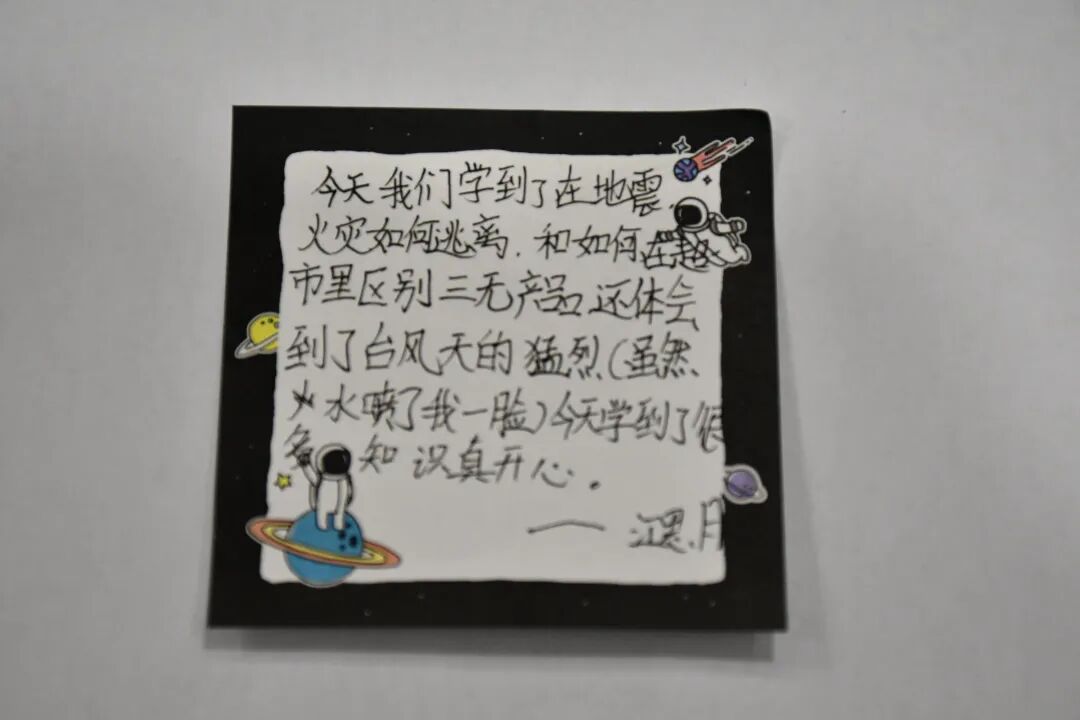 今天我们学到了在地震
火灾如何逃离.和如何在超
市里区别三无产品还体会
到了台风天的猛烈(虽然
水喷了我一脸)今天学到了很
多知识真开心.
—— 江思月